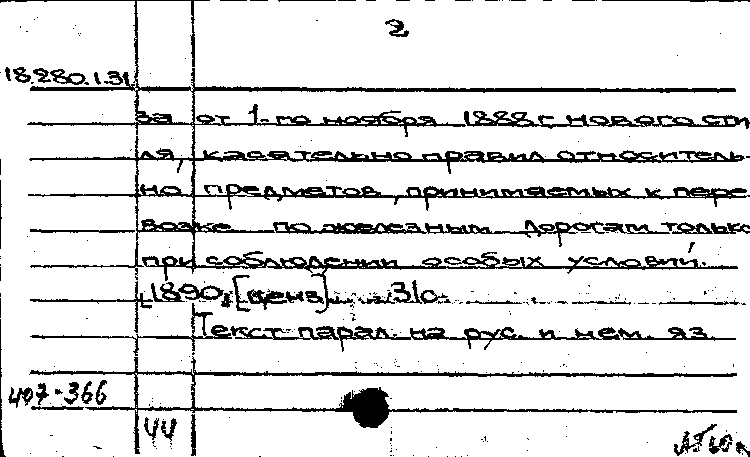 2
18.280.1.31
за от 1-го ноября 1888 г. нового сти
ля, касательно правил относитель-
но предметов, принимаемых к пере
возке по железным дорогам только
при соблюдении особых условий.
[1890], [ценз]. 31с.
Текст парал. на рус. и нем. яз.
407-366
44